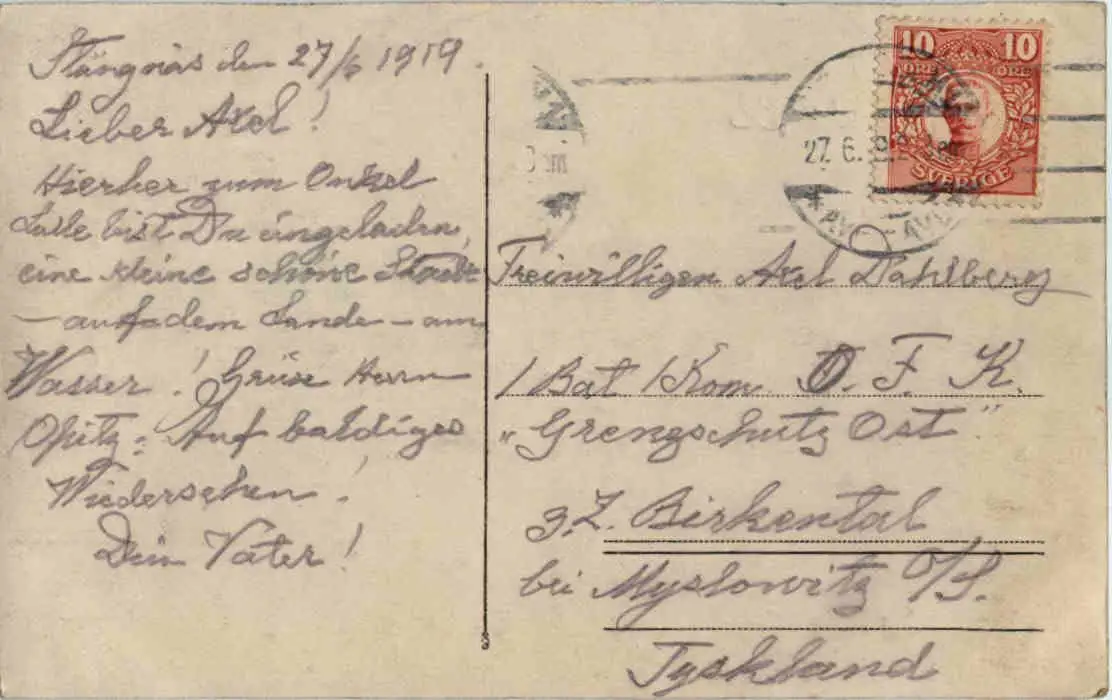 Strängnäs den 27/6 1919.
Lieber Axel!
Hierher zum Onkel
Lalle bist Du eingeladen,
eine kleine schöne Stadt
– auf dem Lande – am
Wasser! Grüse Herrn
Opitz. Auf baldiges
Wiedersehen!
Dein Vater!
10 10
ÖRE ÖRE
SVERIGE
27.6.
Freiwilligen Axel Dahlberg
1 Bat 1 Kom O. F. K.
„Grengschutz Ost"
z. Z. Birkental
bei Myslowitz O/S.
Tyskland
3